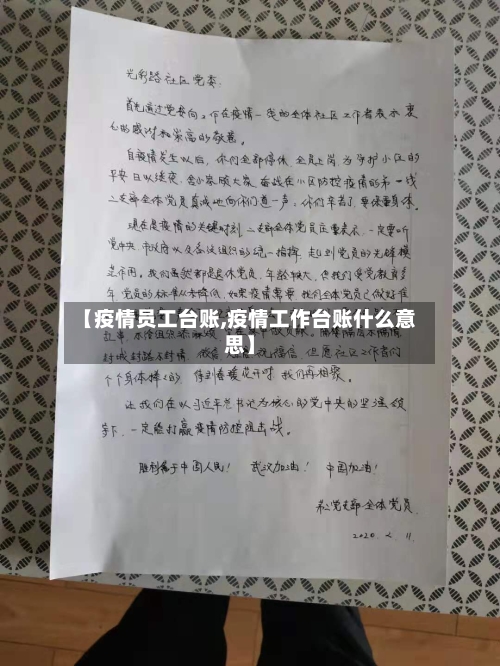 光彩路社区党委:
首先通过党委向工作在疫情一线的全体社区工作者表示衷
心的感谢和崇高的敬意。
自疫情发生以后,你们全部停休,全员上岗,为守护小区的
平安日以继夜,舍小家顾大家,奋战在小区防控疫情的第一线
支部全体党员真诚地向你们道一声,你们辛苦了,要保重身体。
现在是疫情的关键时刻,支部全体党员
党中央、市政府以及各级组织的统一指挥,起到党员的先锋模
范作用。我们虽然都是退休党员,年龄较大,但我们受党教育多
年,党员的标准从未降低,如果疫情需要,我们全体党员已做好准
【疫情员工台账,疫情工作台账什么意
思】
封城封路不封情
个个身体棒棒的,待到春暖花开时,我们再相聚。
让我们在以习近平总书记为核心的党中央的坚强领
导下,一定能打赢疫情防控阻击战。
胜利属于中国人民! 武汉加油! 中国加油!
党支部全体党员
2020.2.11